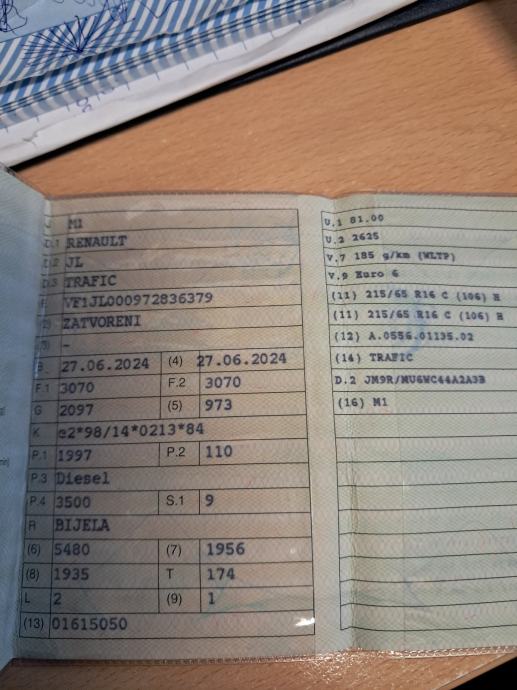 J M1
D.1 RENAULT
D.2 JL
D.3 TRAFIC
E VF1JL000972836379
(2) ZATVORENI
(3) -
B 27.06.2024 (4) 27.06.2024
F.1 3070 F.2 3070
G 2097 (5) 973
K e2*98/14*0213*84
P.1 1997 P.2 110
P.3 Diesel
P.4 3500 S.1 9
R BIJELA
(6) 5480 (7) 1956
(8) 1935 T 174
L 2 (9) 1
(13) 01615050
U.1 81.00
U.2 2625
V.7 185 g/km (WLTP)
V.9 Euro 6
(11) 215/65 R16 C (106) H
(11) 215/65 R16 C (106) H
(12) A.0556.01135.02
(14) TRAFIC
D.2 JM9R/MU6WC44A2A3B
(16) M1